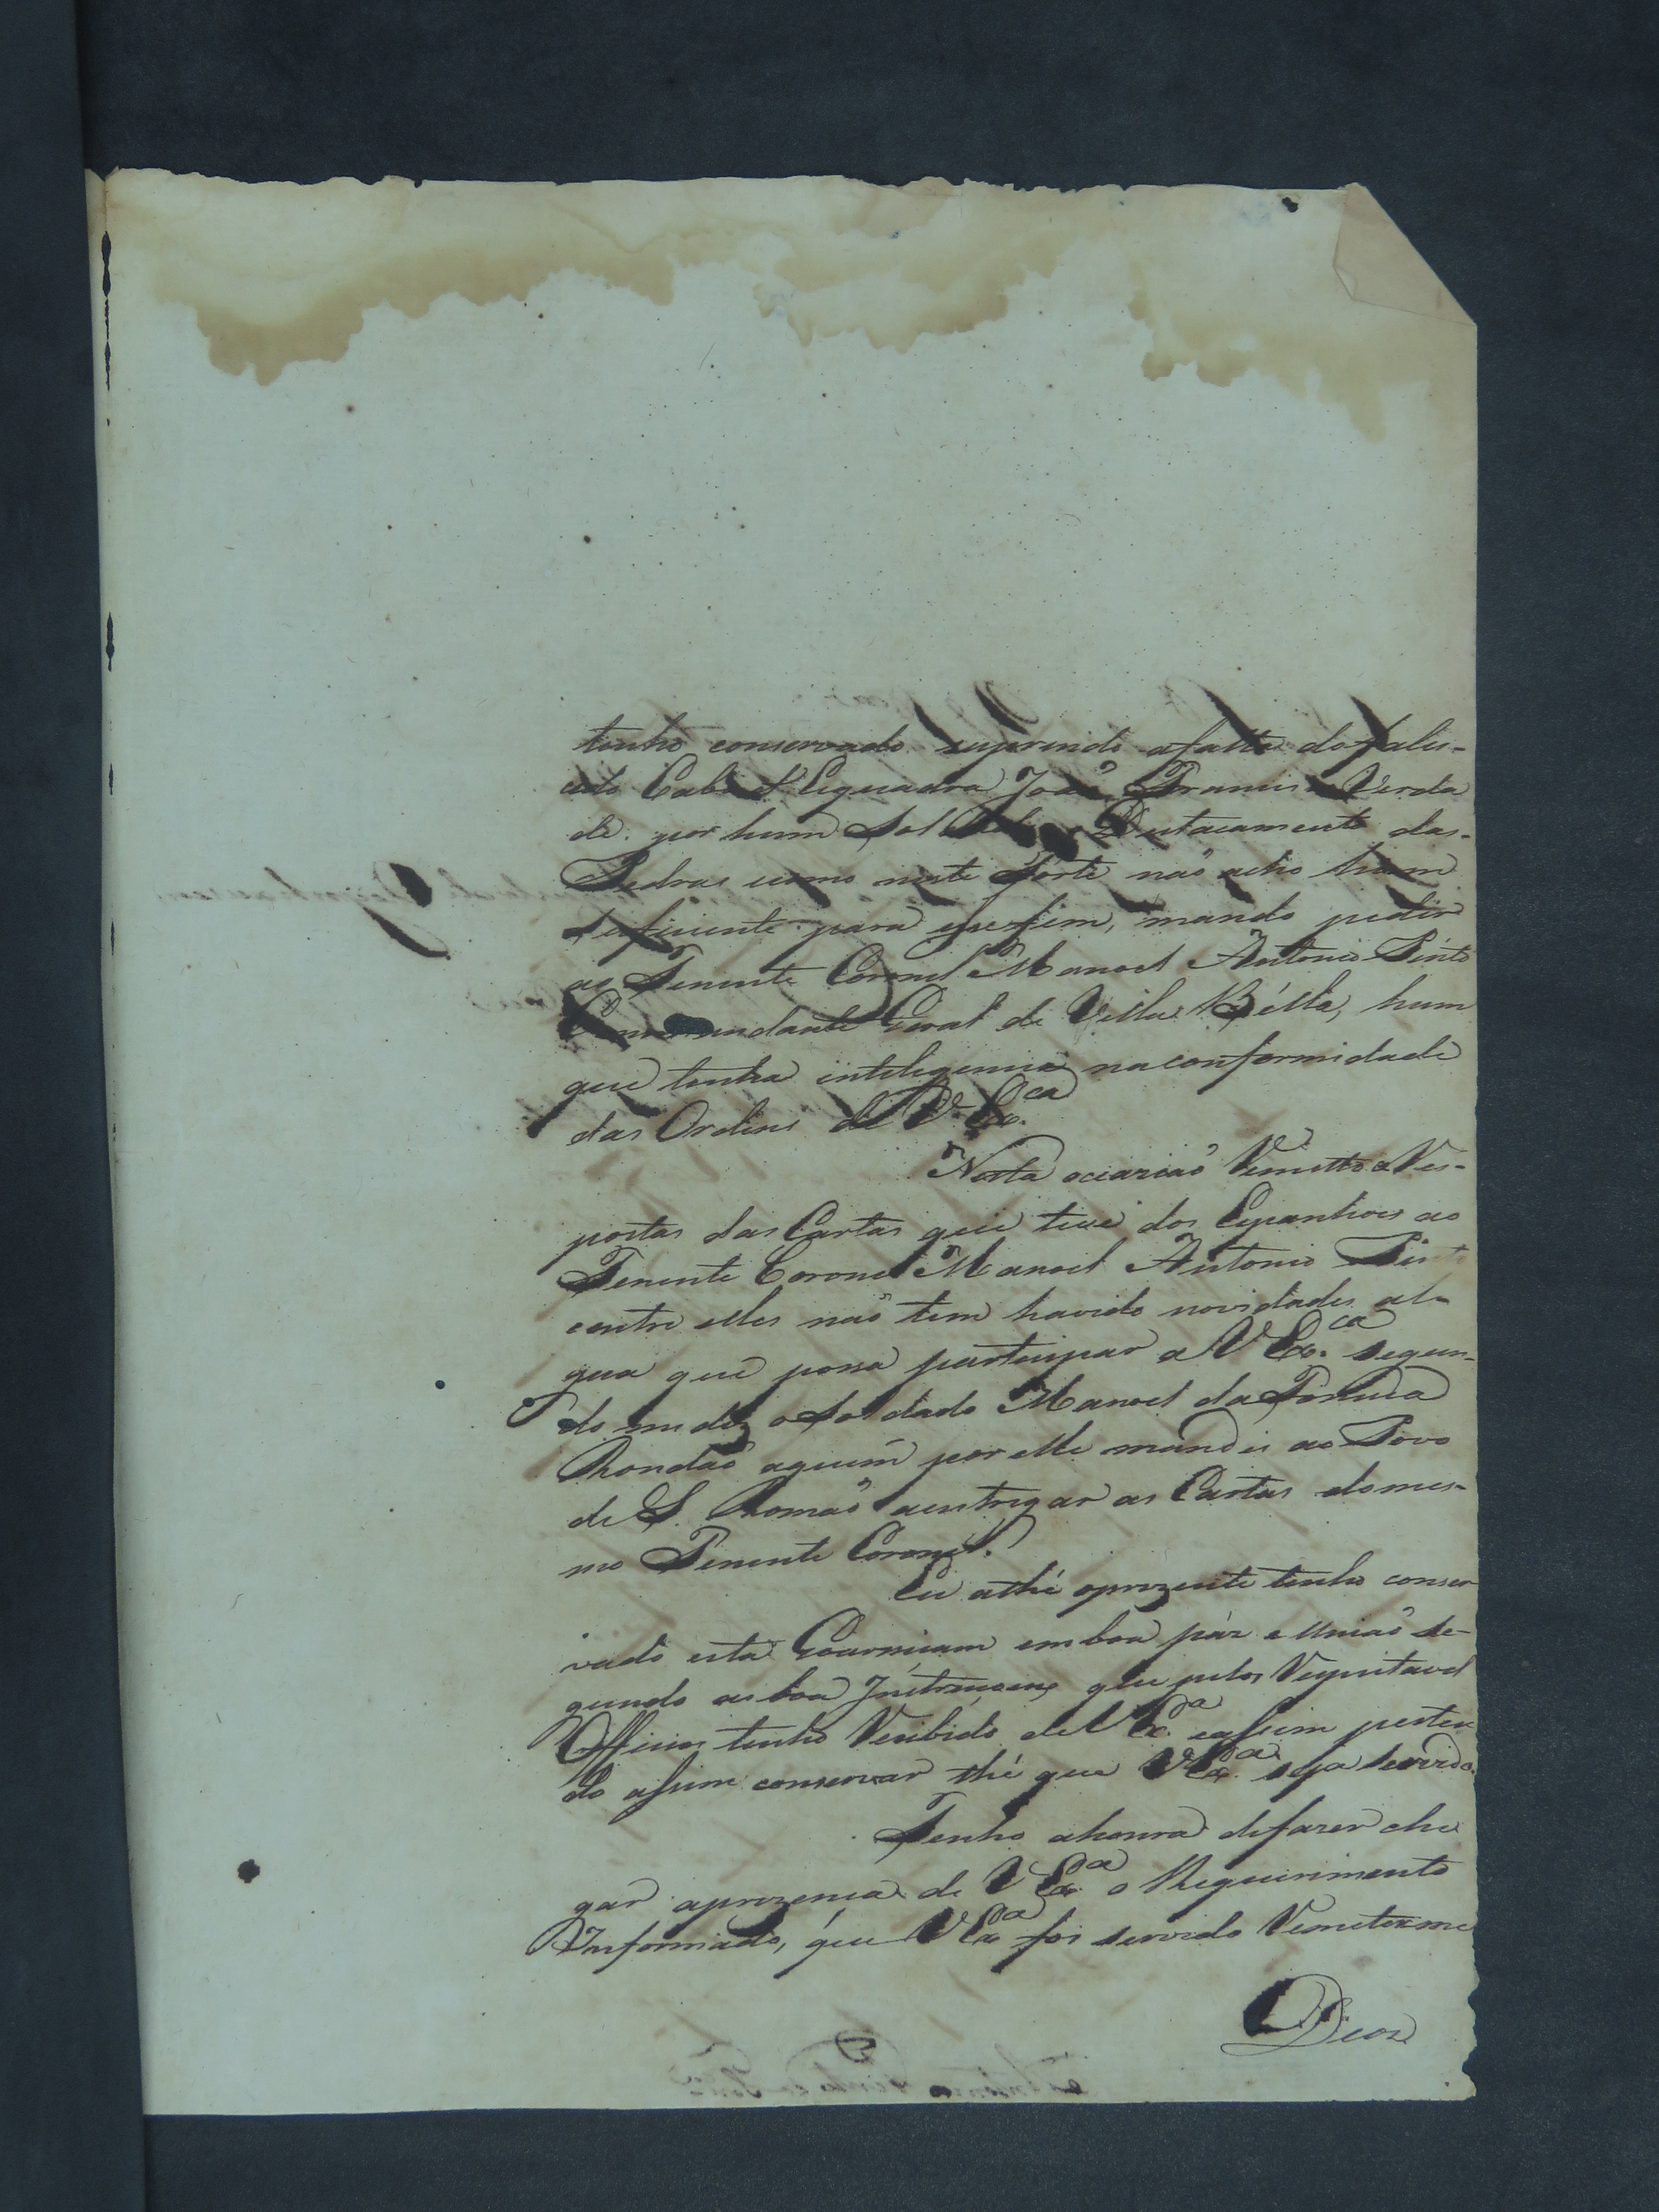 tenho conservado suprindo afalta dofalis-
cido Cabo d'Esquadra João Francisco Verda
de por hum Sol Destacamento das
Pedras como neste forte não acho hum
suficiente para esse fim, mando pedir
ao Tenente Coronel Manoel Antonio Pinto
Commandante Geral de Villa Bélla, hum
que tenha inteligencia naconformidade
das Ordens de V. Ex.ca
Nesta occazião Remetto a Res-
postas das Cartas que tive dos Espanhoes ao
Tenente Coronel Manoel Antonio Pinto
entre elles não tem havido novidades al-
gua que possa participar a V Ex.ca segun-
do me diz o Soldado Manoel da Fonseca
Rondão aquem por elle mandei ao Povo
de S. Romão aentregar as Cartas do mes-
mo Tenente Coronel.
Eu athé oprezente tenho conser
vado esta Goarniçam em boa páz e União Se-
gundo as boa Instruçoens que pelos Respeitavel
Officios tenho Recibido de V Ex.ca eassim perten
do assim conservar thé que V Ex.ca seja Servido.
Tenho ahonra defazer che
gar aprezença de V Ex.ca o Requerimento
Informado, que V Ex.ca foi servido Remeterme
Deos